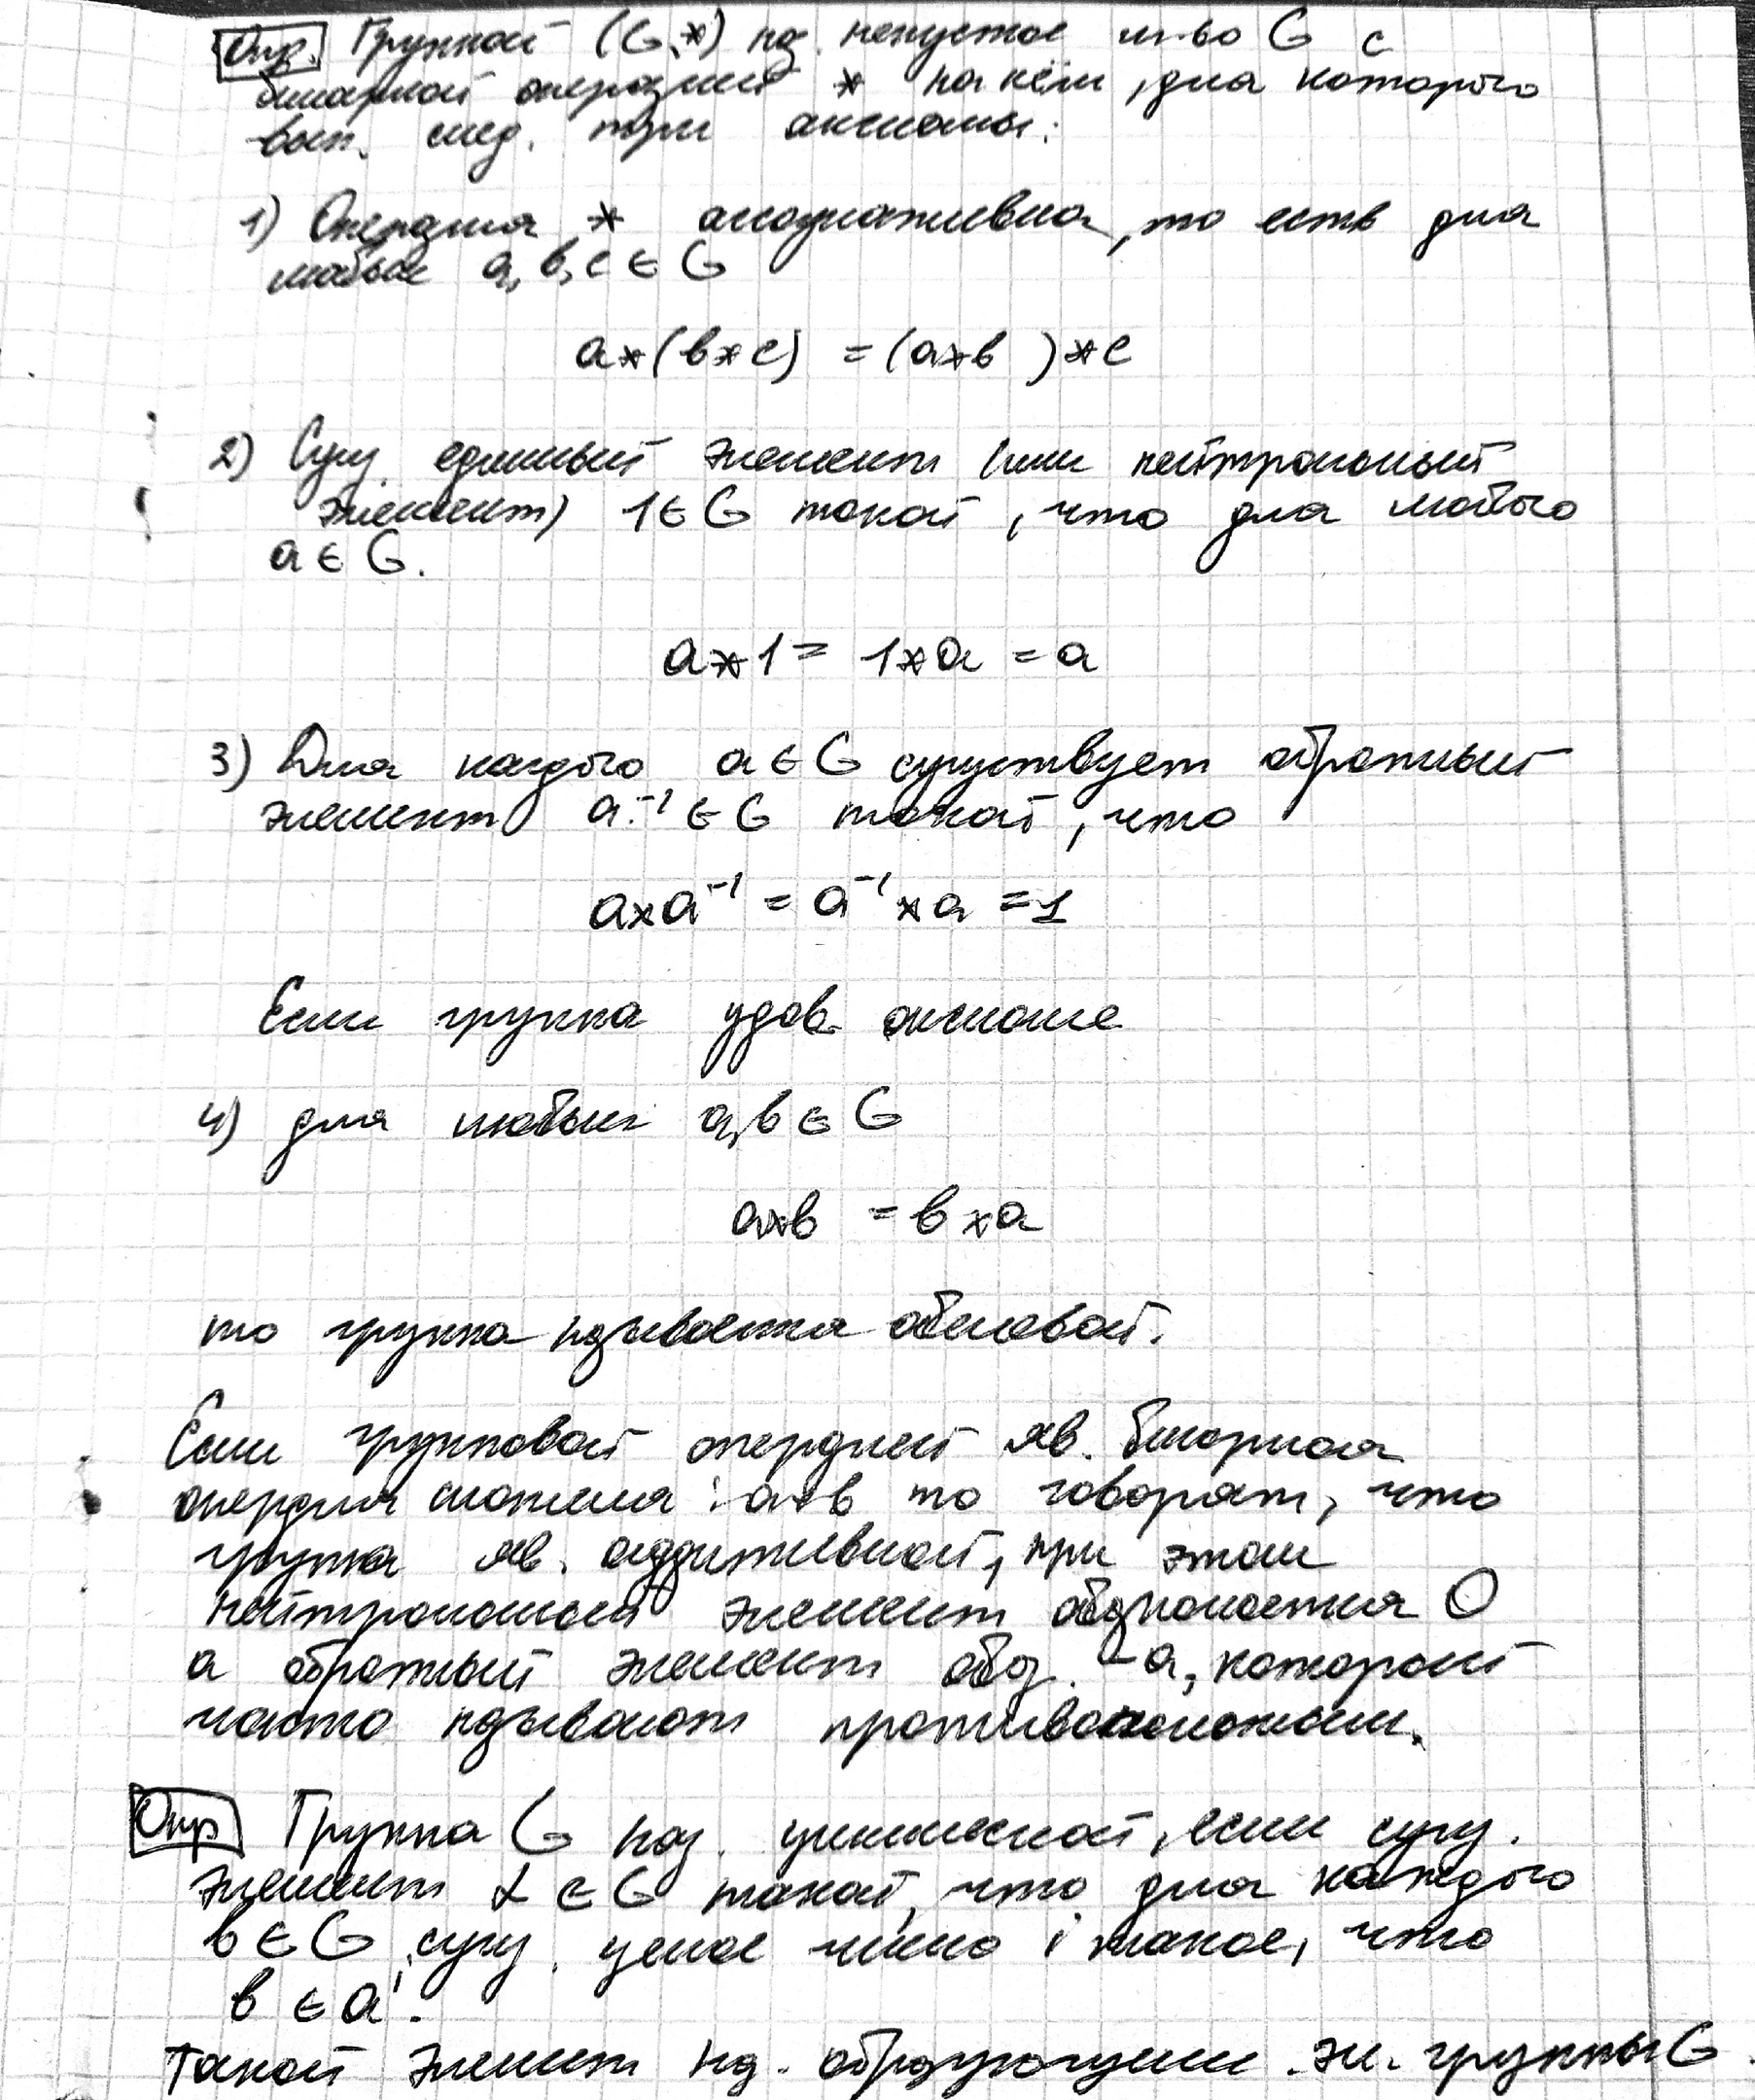 Опр. Группой (G,*) нз. непустое мн-во G с
бинарной операцией * на нём, для которого
вып. след. три аксиомы:
1) Операция * ассоциативна, то есть для
любых a, b, c ∈ G
a*(b*c) = (a*b)*c
2) Сущ. единый элемент (или нейтральный
элемент) 1 ∈ G такой, что для любого
a ∈ G.
a*1 = 1*a = a
3) Для каждого a ∈ G существует обратный
элемент a⁻¹ ∈ G такой, что
a*a⁻¹ = a⁻¹*a = 1
Если группа удов. аксиоме
4) для любых a, b ∈ G
a*b = b*a
то группа нзывается абелевой.
Если групповой оперзцией яв. бинарная
оперзция сложения : a+b то говорят, что
группа яв. аддитивной, при этом
нейтральный элемент обзначается 0
а обратный элемент обоз. -a, который
часто нзывают противоположным.
Опр Группа G наз. циклической, если сущ.
элемент α ∈ G такой, что для каждого
b ∈ G сущ. целое число i такое, что
b ∈ aⁱ.
Такой элемент нз. образующим эл. группы G.